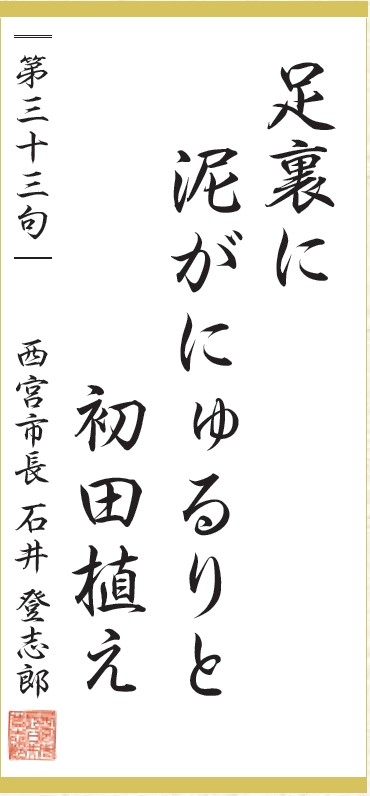 足裏に
泥がにゅるりと
初田植え
第三十三句
西宮市長 石井 登志郎